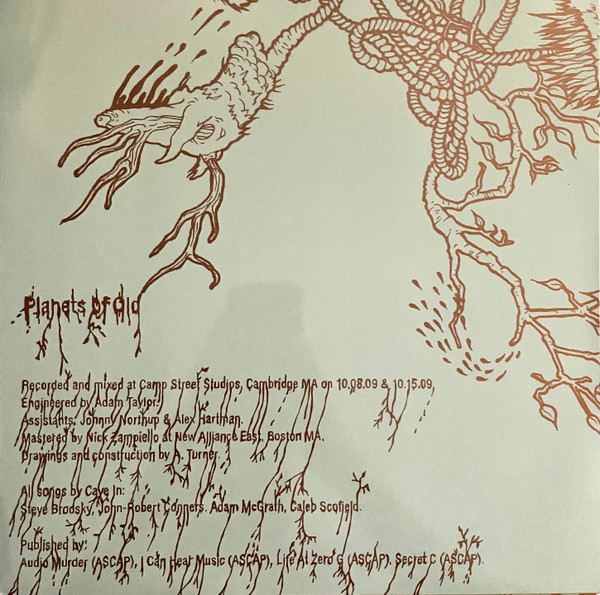 Planets of Old
Recorded and mixed at Camp Street Studios, Cambridge MA on 10.08.09 & 10.15.09.
Engineered by Adam Taylor.
Assistants: Johnny Northup & Alex Hartman.
Mastered by Nick Zampiello at New Alliance East, Boston MA.
Drawings and construction by A. Turner.
All songs by Cave In:
Steve Brodsky, John-Robert Conners, Adam McGrath, Caleb Scofield.
Published by:
Audio Murder (ASCAP), I Can Hear Music (ASCAP), Life At Zero G (ASCAP), Secret C (ASCAP).